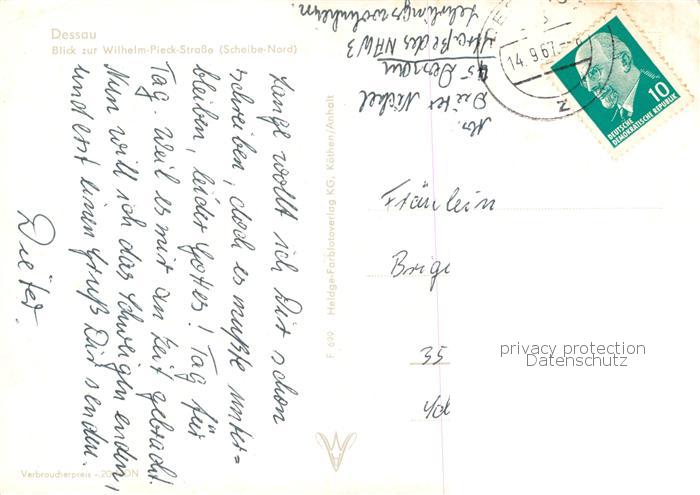 Dessau
Blick zur Wilhelm-Pieck-Straße (Scheibe-Nord)
Lange wollt ich Dir schon
schreiben, doch es mußte unter=
bleiben, leider Gottes! Tag für
Tag. Weil es mir an Zeit gebracht.
Nun will ich das Schweigen enden,
und erst einen Gruß Dir senden.
Dieter.
Verbraucherpreis -,20 MDN
F 699 Heldge-Farbfotoverlag KG, Köthen/Anhalt
Abs.
Dieter
45 Dessau
Straße des NAW 3
Lehrlingswohnheim.
14.9.67
10
DEUTSCHE
DEMOKRATISCHE REPUBLIK
Fräulein
Brigi
35
privacy protection
Datenschutz